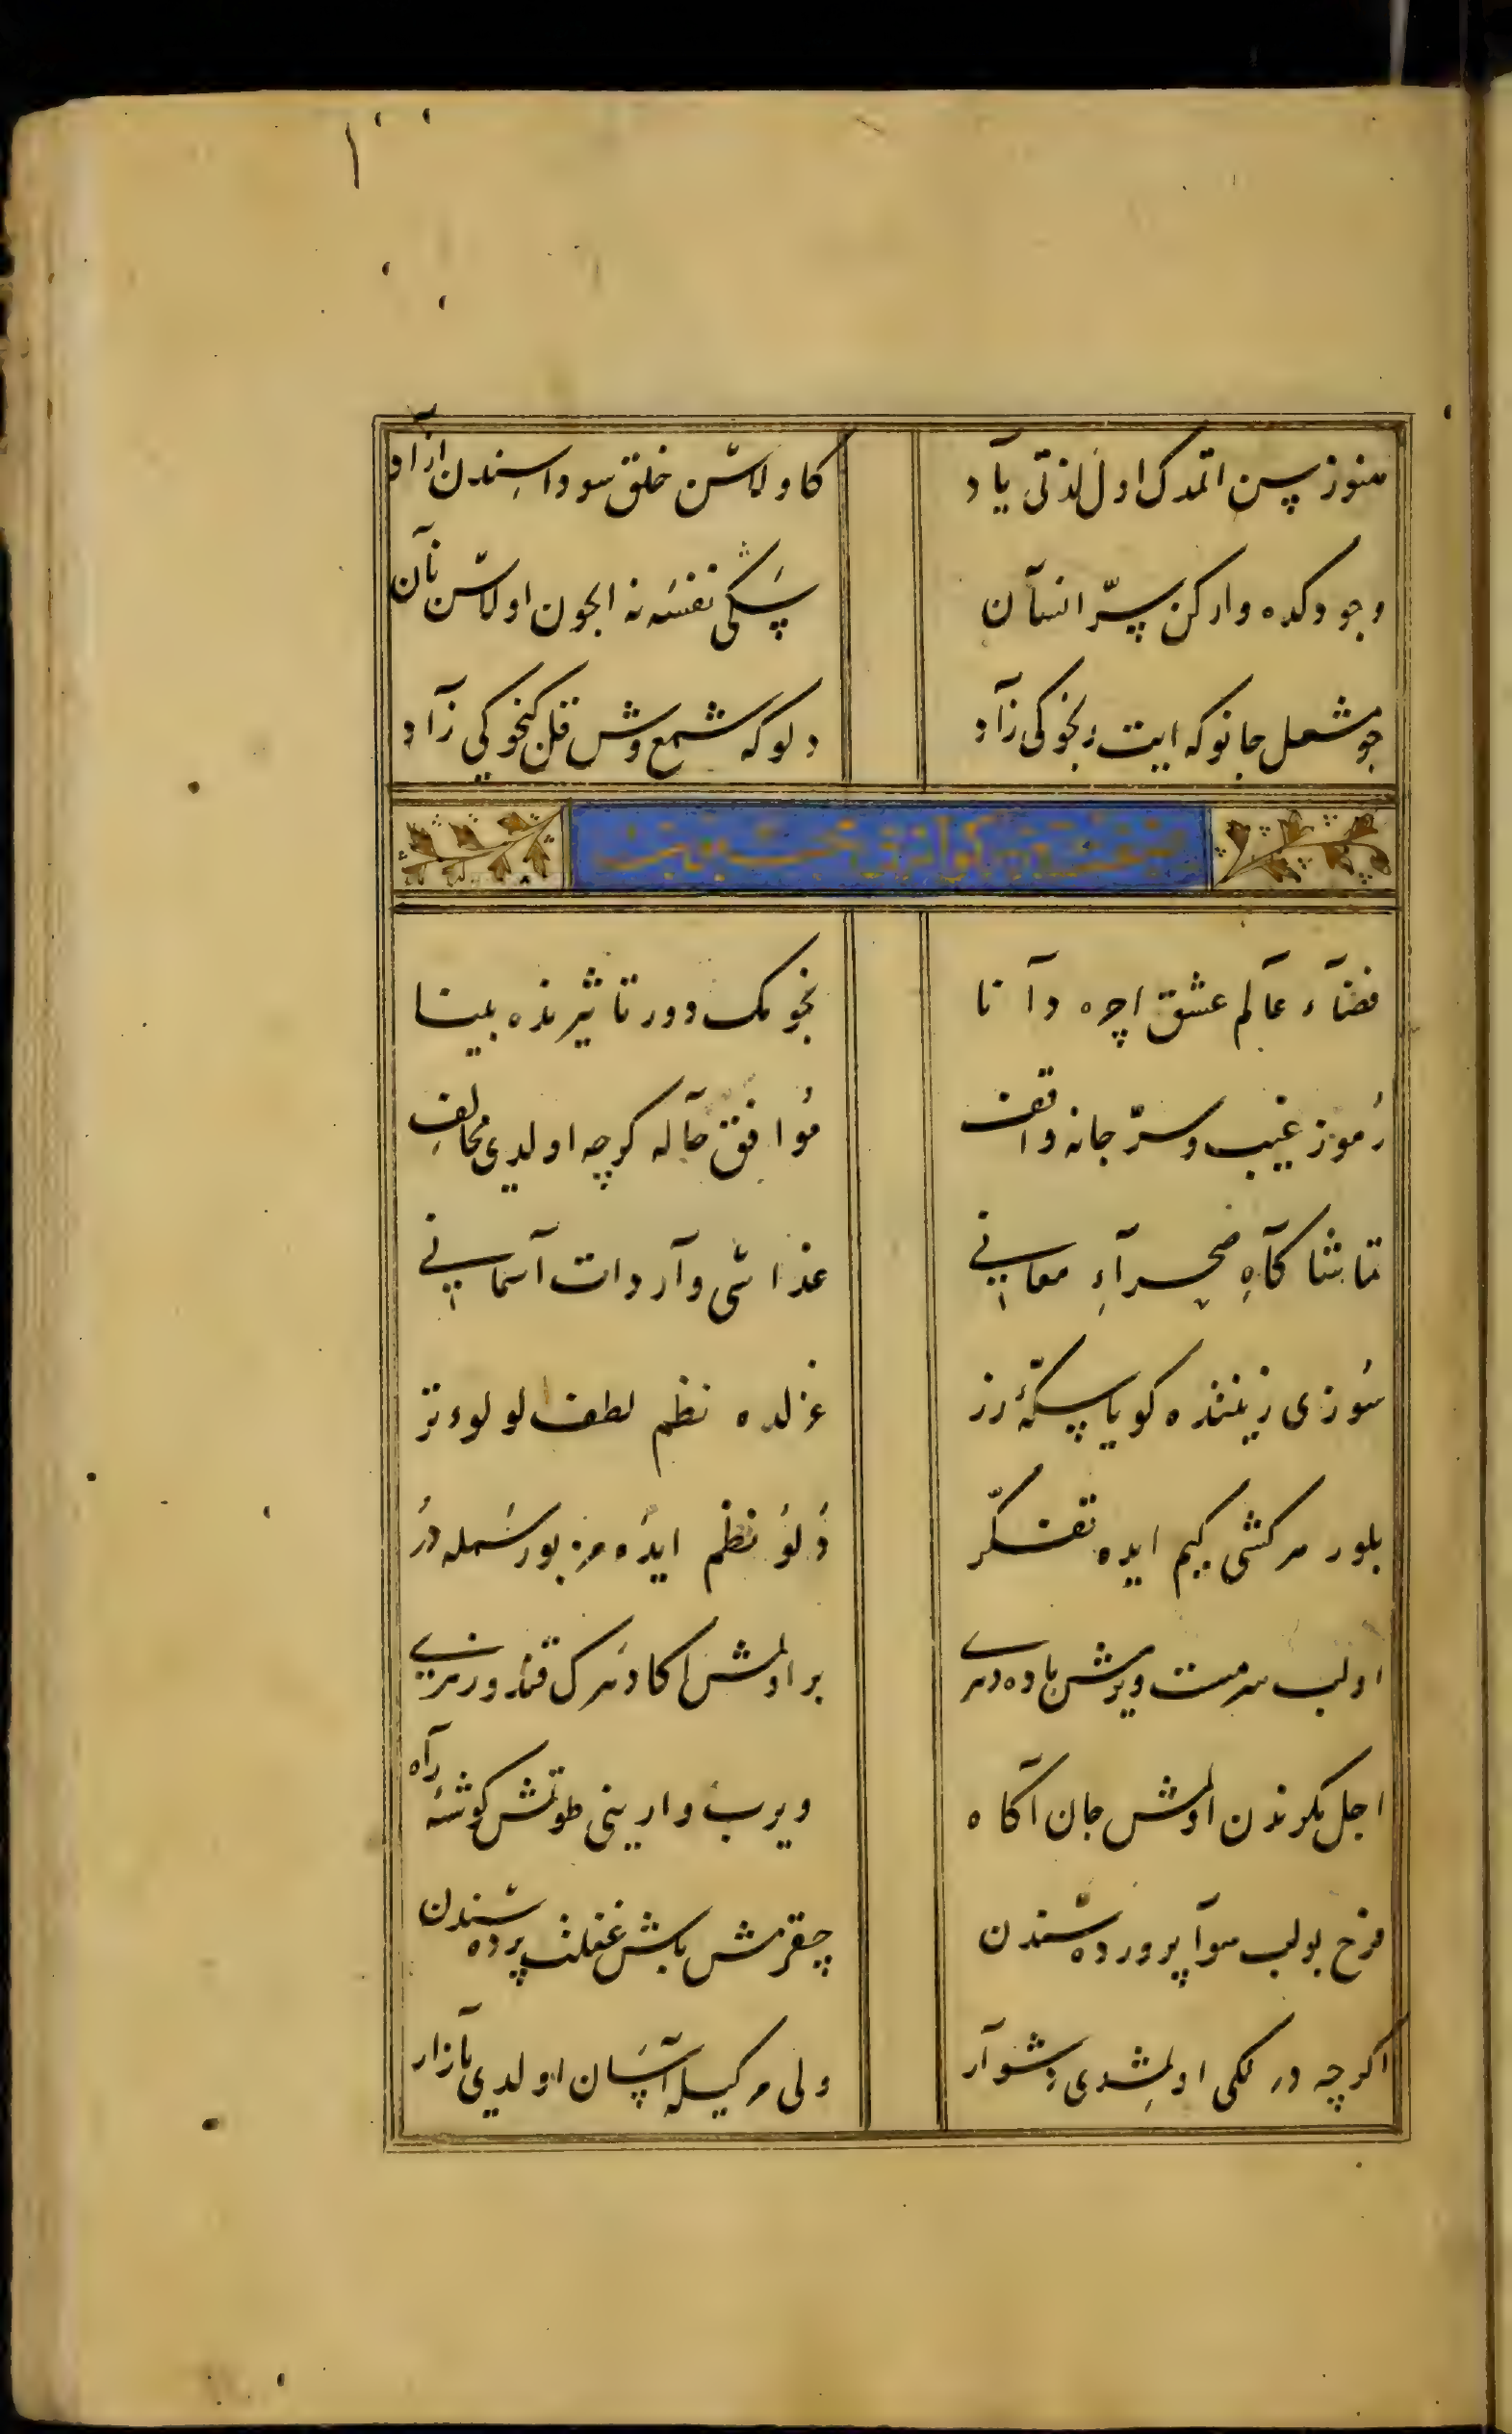 هنوز سن اتمدك اول لذتی یاد كا ولاسّن خلق سوداسندن ازاد
وجودكده واركن سرّ انسان سكی نفسنه ایچون اولاسّن نان
چو مشعل جانوكه ایت رنجوكی زاد دلوكه شمع وش قل كنجوكی زاد
فضاء عالم عشق اچره دانا نجومك دور تاثیرنده بینا
رُموز غیب و سرّ جانه واقف مُوافق حاله كرچه اولدی مخالف
تماشا كاهِ صحراءِ معانی غذاسی واردات آسمانی
سُوزی زیننده كویا سكّهٔ زر غزلده نظم لطف لولوء تر
بلور هر كشی كیم ایده تفكّر دُلوُ نظم ایدَه مز بو رسمله دُر
اولب سرمست ویرمش باده دهر بر اولمش اكا دهرك قند و زهری
اجل مكرندن اولمش جان آكاه ویرب وارینی طوتمش كوشهٔ راه
فرح بولب هوا پرورده سندن چقرمش باش غفلت پرده سندن
اكرچه در لكی اولمشدی دشوار ولی هر كیسله آسان اولدی بازار